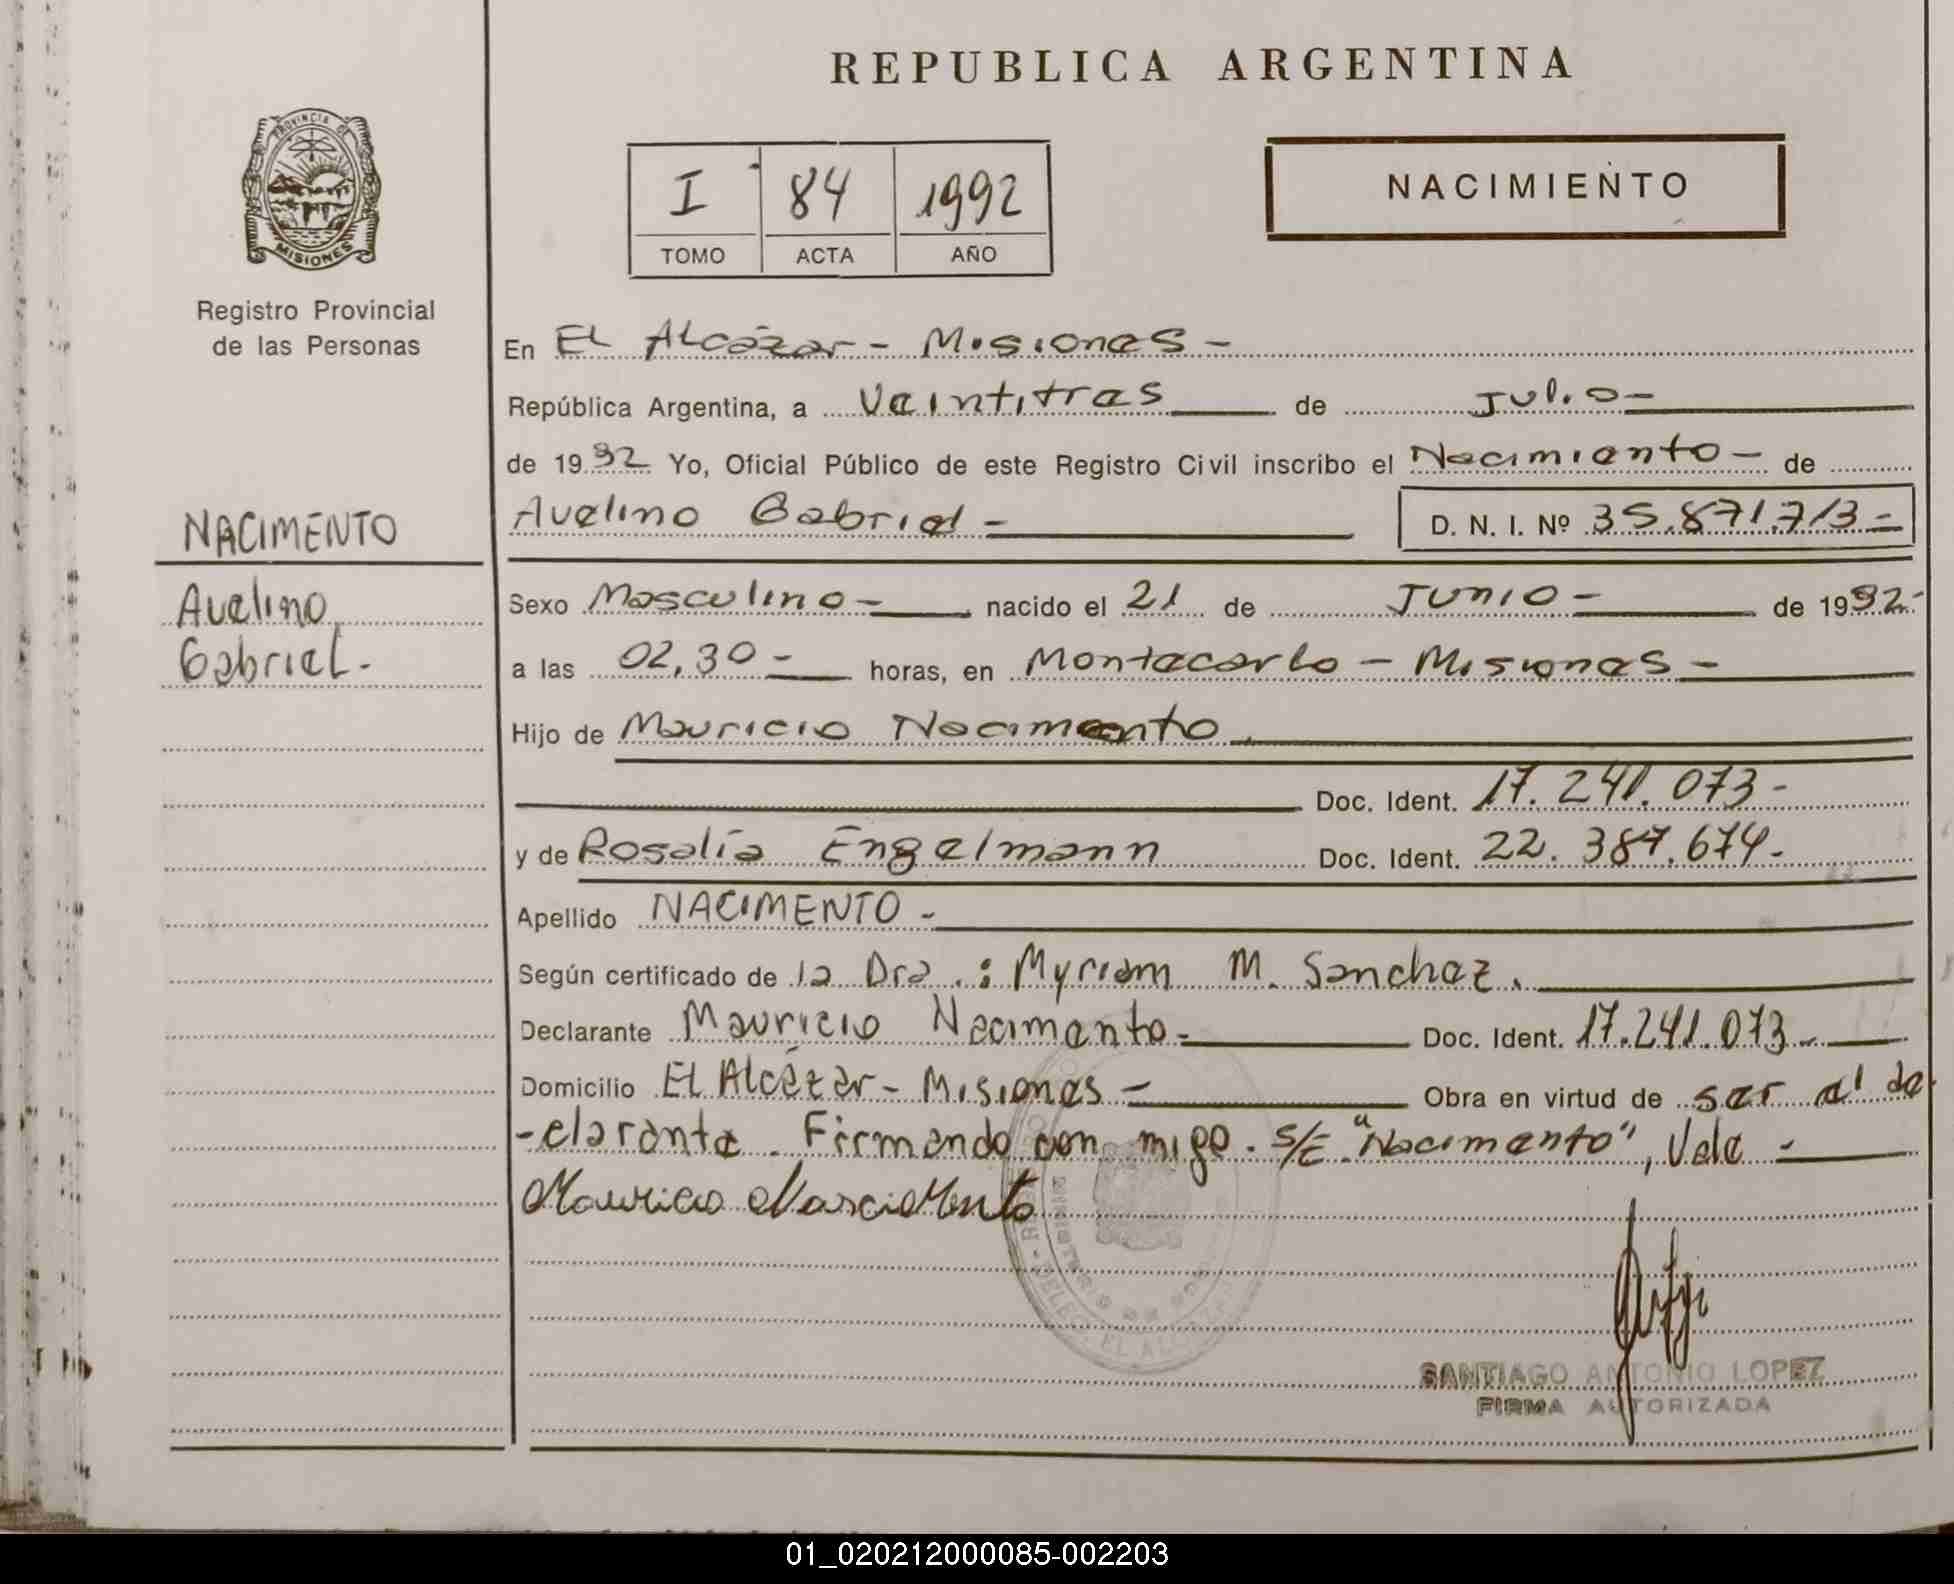 REPUBLICA ARGENTINA
PROVINCIA DE
MISIONES
Registro Provincial
de las Personas
I 84 1992
TOMO ACTA AÑO
NACIMIENTO
En El Alcázar - Misiones -
República Argentina, a Veintitres de Julio -
de 1992 Yo, Oficial Público de este Registro Civil inscribo el Nacimiento - de
Avelino Gabriel - D. N. I. Nº 35.871.713 -
NACIMENTO
Avelino
Gabriel -
Sexo Masculino - nacido el 21 de Junio - de 1992 -
a las 02,30 - horas, en Montecarlo - Misiones -
Hijo de Mauricio Nacimento
Doc. Ident. 17.241.073 -
y de Rosalía Engelmann Doc. Ident. 22.387.674 -
Apellido NACIMENTO -
Según certificado de la Dra.: Myriam M. Sanchez.
Declarante Mauricio Nacimento - Doc. Ident. 17.241.073 -
Domicilio El Alcázar - Misiones - Obra en virtud de ser el de
-clarante. Firmando con migo. S/E "Nacimento", Vale -
Mauricio Nascimento
MINISTERIO DE
DELEG. EL ALCAZAR
SANTIAGO ANTONIO LOPEZ
FIRMA AUTORIZADA
01_020212000085-002203